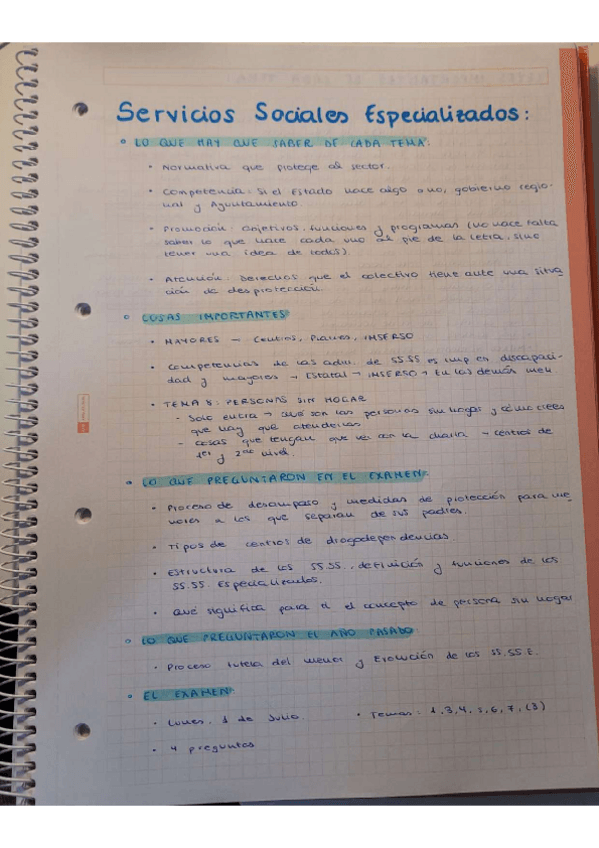 Servicios Sociales Especializados:
° LO QUE HAY QUE SABER DE CADA TEMA:
• Normativa que protege al sector.
• Competencia: Si el Estado hace algo o no, gobierno regio-
nal y Ayuntamiento.
• Promoción: objetivos, funciones y programas (no hace falta
saber lo que hace cada uno al pie de la letra, sino
tener una idea de todos)
• Atención: Derechos que el colectivo tiene ante una situa
ción de desprotección.
° COSAS IMPORTANTES:
• MAYORES → Centros, Planes, IMSERSO
• Competencias de las adm. de SS.SS es imp en discapaci-
dad y mayores → Estatal → IMSERSO → En los demás
• TEMA 8: PERSONAS SIN HOGAR
- Solo entra → qué son las personas sin hogar y cómo crees
que hay que atenderlas
- cosas que tengan que ver con la charla → centros de
1er y 2do nivel.
° LO QUE PREGUNTARON EN EL EXAMEN:
• Proceso de desamparo y medidas de protección para me
nores a los que separan de sus padres.
• Tipos de centros de drogodependencias.
• Estructura de los SS.SS., definición y funciones de los
SS.SS. Especializados.
• Qué significa para ti el concepto de persona sin hogar
° LO QUE PREGUNTARON EL AÑO PASADO
• Proceso tutela del menor y Evolución de los SS.SS E.
° EL EXAMEN:
• Lunes, 1 de Julio. • Temas: 1, 3, 4, 5, 6, 7, (3)
• 4 preguntas